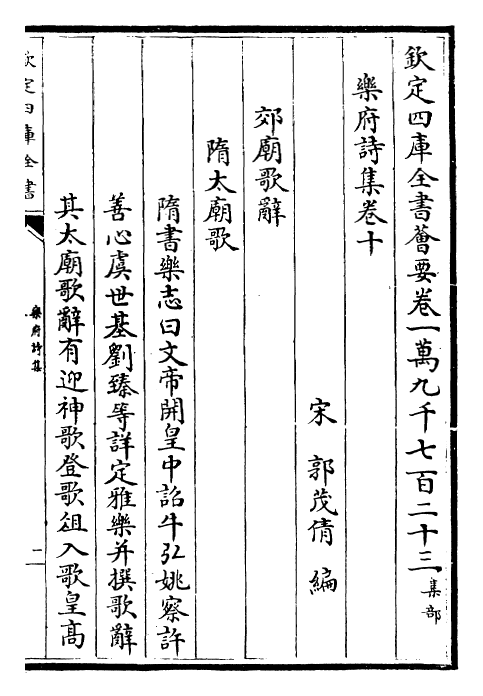 欽定四庫全書薈要卷一萬九千七百二十三集部
樂府詩集卷十
宋 郭茂倩 編
郊廟歌辭
隋太廟歌
隋書樂志曰文帝開皇中詔牛弘姚察許
善心虞世基劉臻等詳定雅樂并撰歌辭
其太廟歌辭有迎神歌登歌俎入歌皇髙
欽定四庫全書
樂府詩集